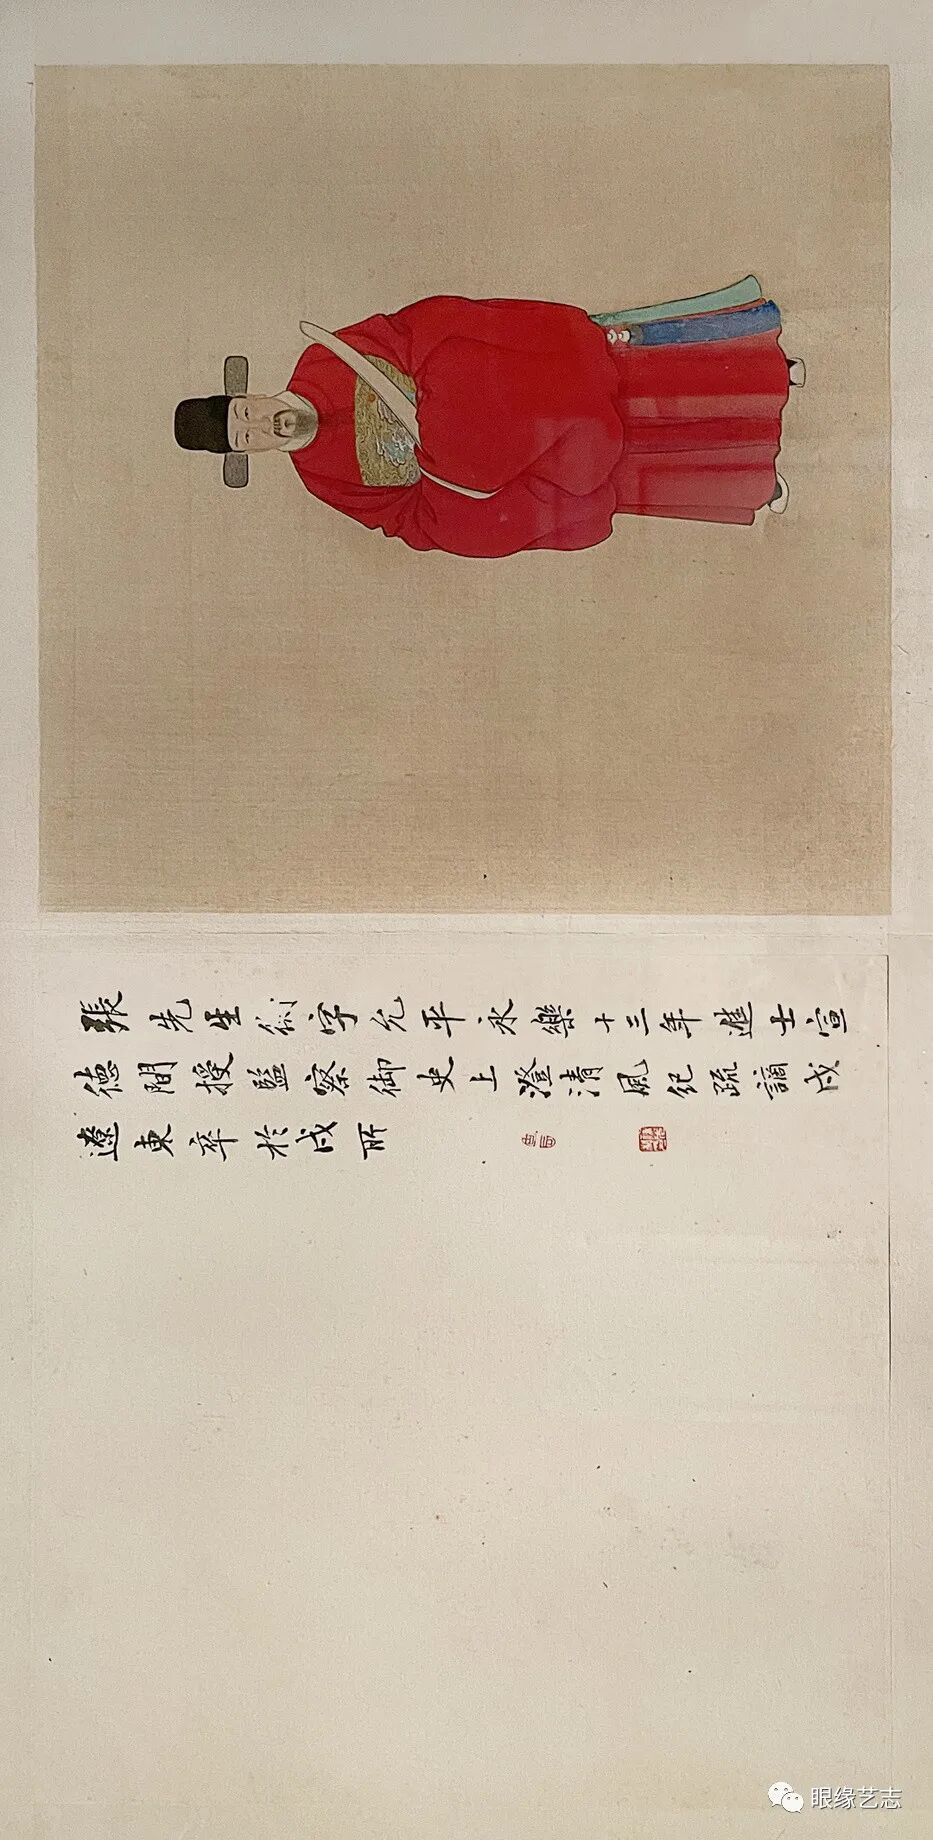 張先生字允平永樂十三年進士宣
德間授監察御史上澄清風紀疏謫戍
遼東卒於戍所
眼缘艺志